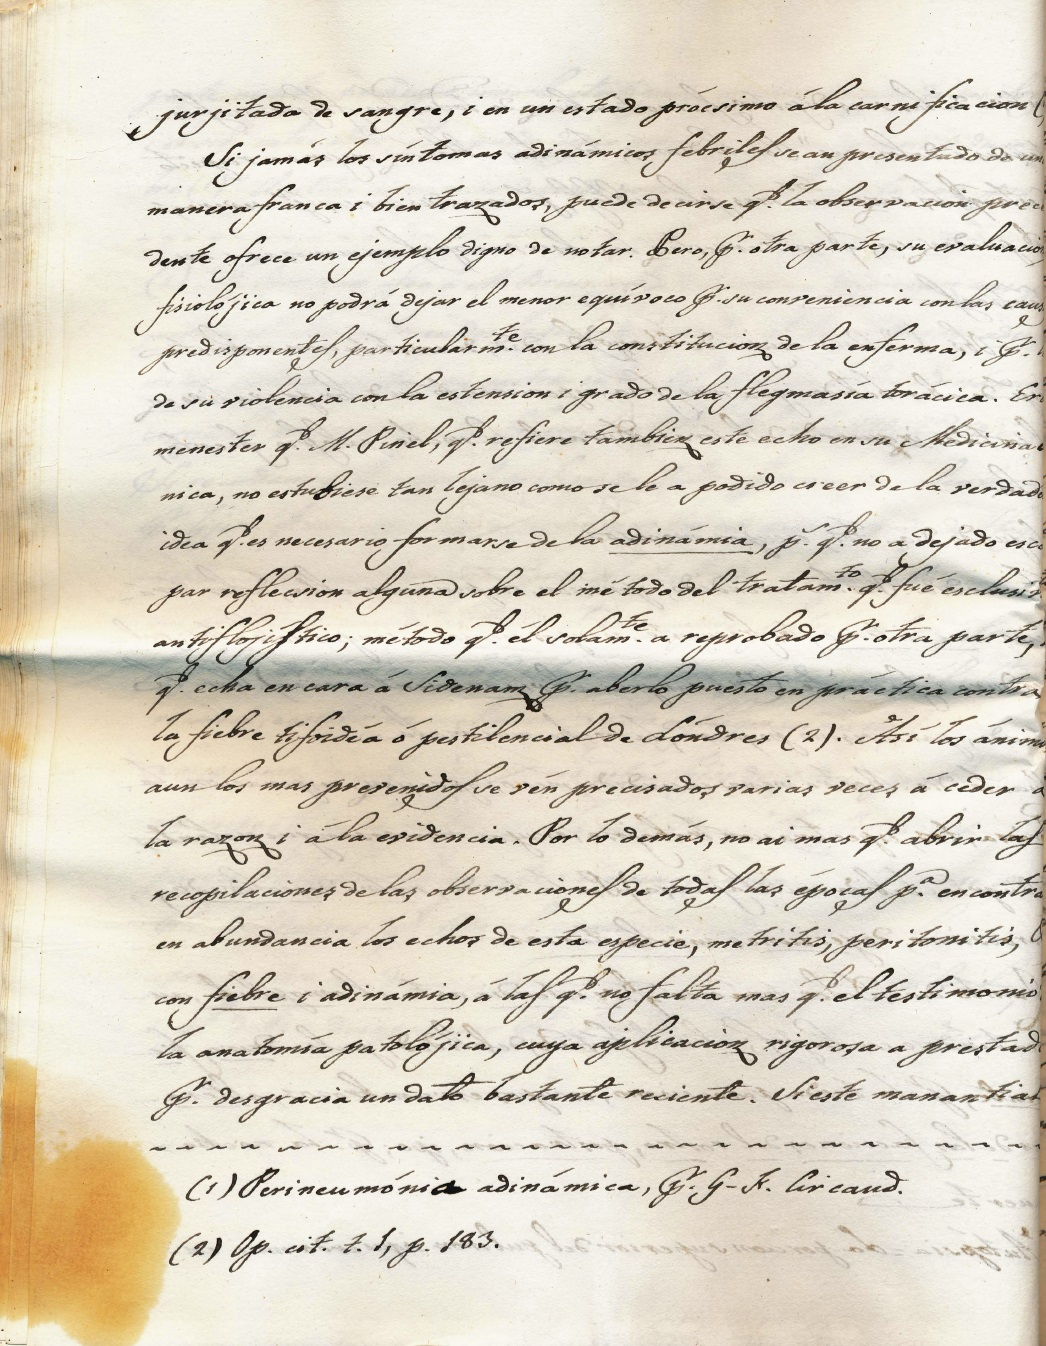 jurjitada de sangre, i en un estado prócsimo á la carnificacion (
Si jamás los síntomas adinámicos febriles se an presentado de un
manera franca i bien trazados, puede decirse q.e la observacion prece
dente ofrece un ejemplo digno de notar. Pero, p.r otra parte, su evaluacion
fisiolójica no podrá dejar el menor equívoco p.r su conveniencia con las caus
predisponentes, particularm.te con la constitucion de la enferma, i p.r
de su violencia con la estension i grado de la flegmasía torácica. Er
menester q.e M. Pinel, q.e refiere tambien este echo en su Medicina
nica, no estubiese tan lejano como se le a podido creer de la verdade
idea q.e es necesario formarse de la adinámia, p.s q.e no a dejado esca
par reflecsion alguna sobre el método del tratam.to q.e fué esclusiv
antiflojístico; método q.e él solam.te a reprobado p.r otra parte,
q.e echa en cara á Sidenam p.r aberlo puesto en práctica contra
la fiebre tifoidéa ó pestilencial de Lóndres (2). Así los ánimo
aun los mas prevenidos se vén precisados varias veces á ceder a
la razon i á la evidencia. Por lo demás, no ai mas q.e abrir las
recopilaciones de las observaciones de todas las épocas p.a encontra
en abundancia los echos de esta especie, metritis, peritonitis,
con fiebre i adinámia, á las q.e no falta mas q.e el testimonio
la anatomía patolójica, cuya aplicacion rigorosa a prestad
p.r desgracia un dato bastante reciente. Si este manantial
(1) Perineumónia adinámica, p.r G-F. Circaud.
(2) Op. cit. t. 1, p. 183.